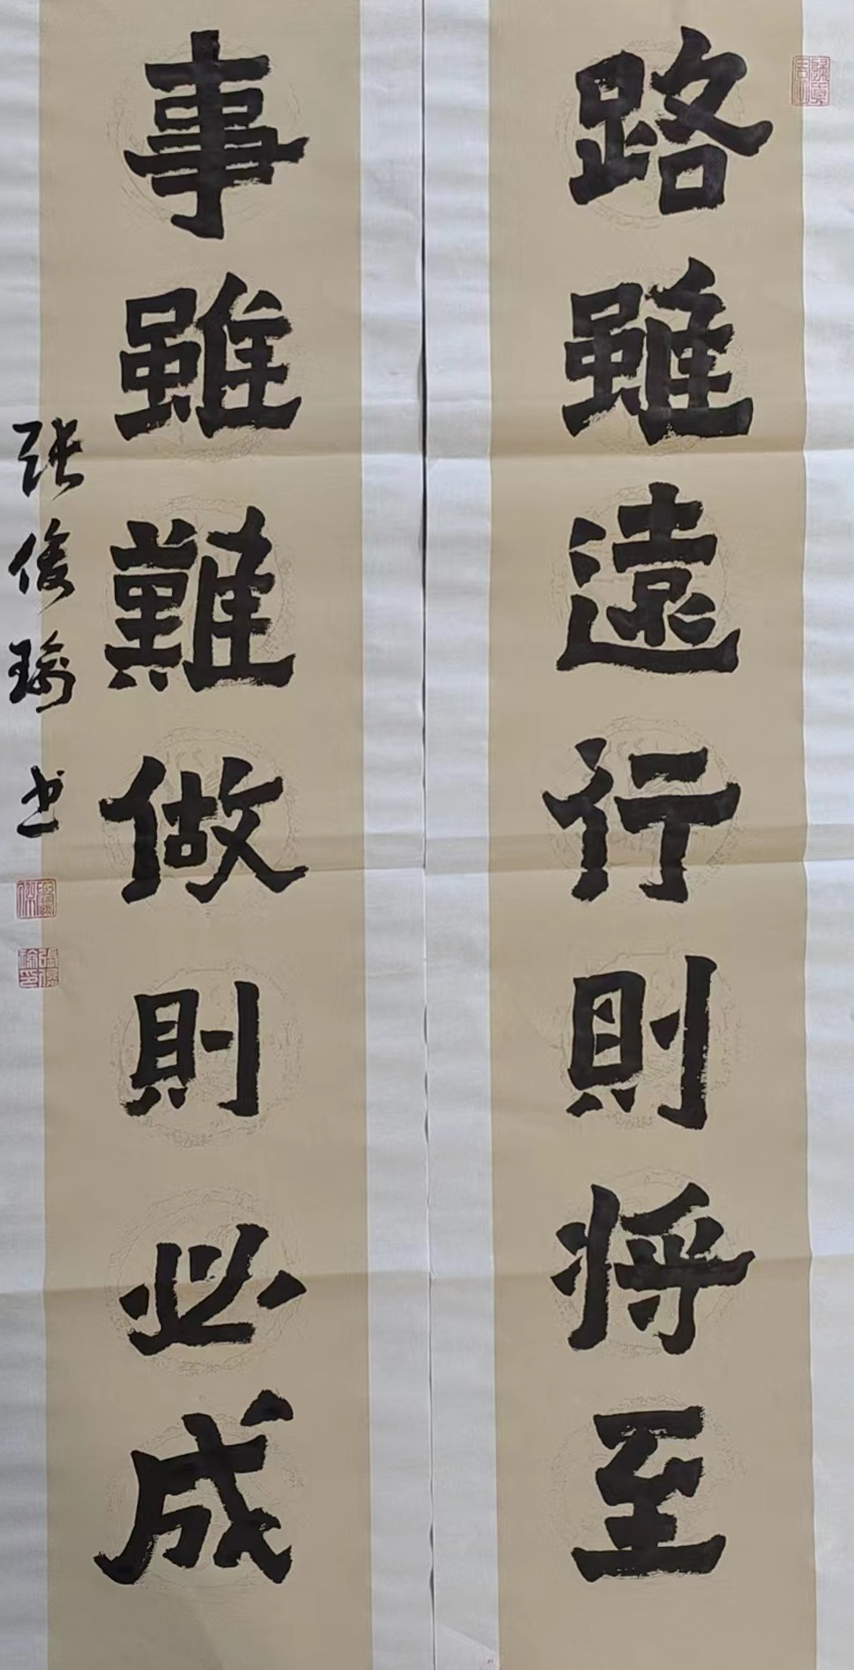 路雖遠行則將至
事雖難做則必成
張俊瑜书